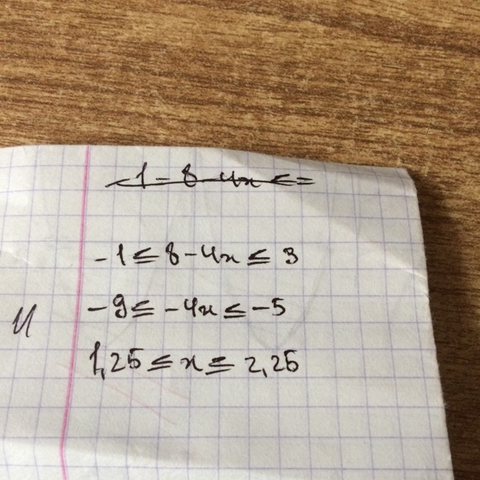 -1 - 8 - 4x ≤ =
-1 ≤ 8 - 4x ≤ 3
-9 ≤ -4x ≤ -5
1,25 ≤ x ≤ 2,25